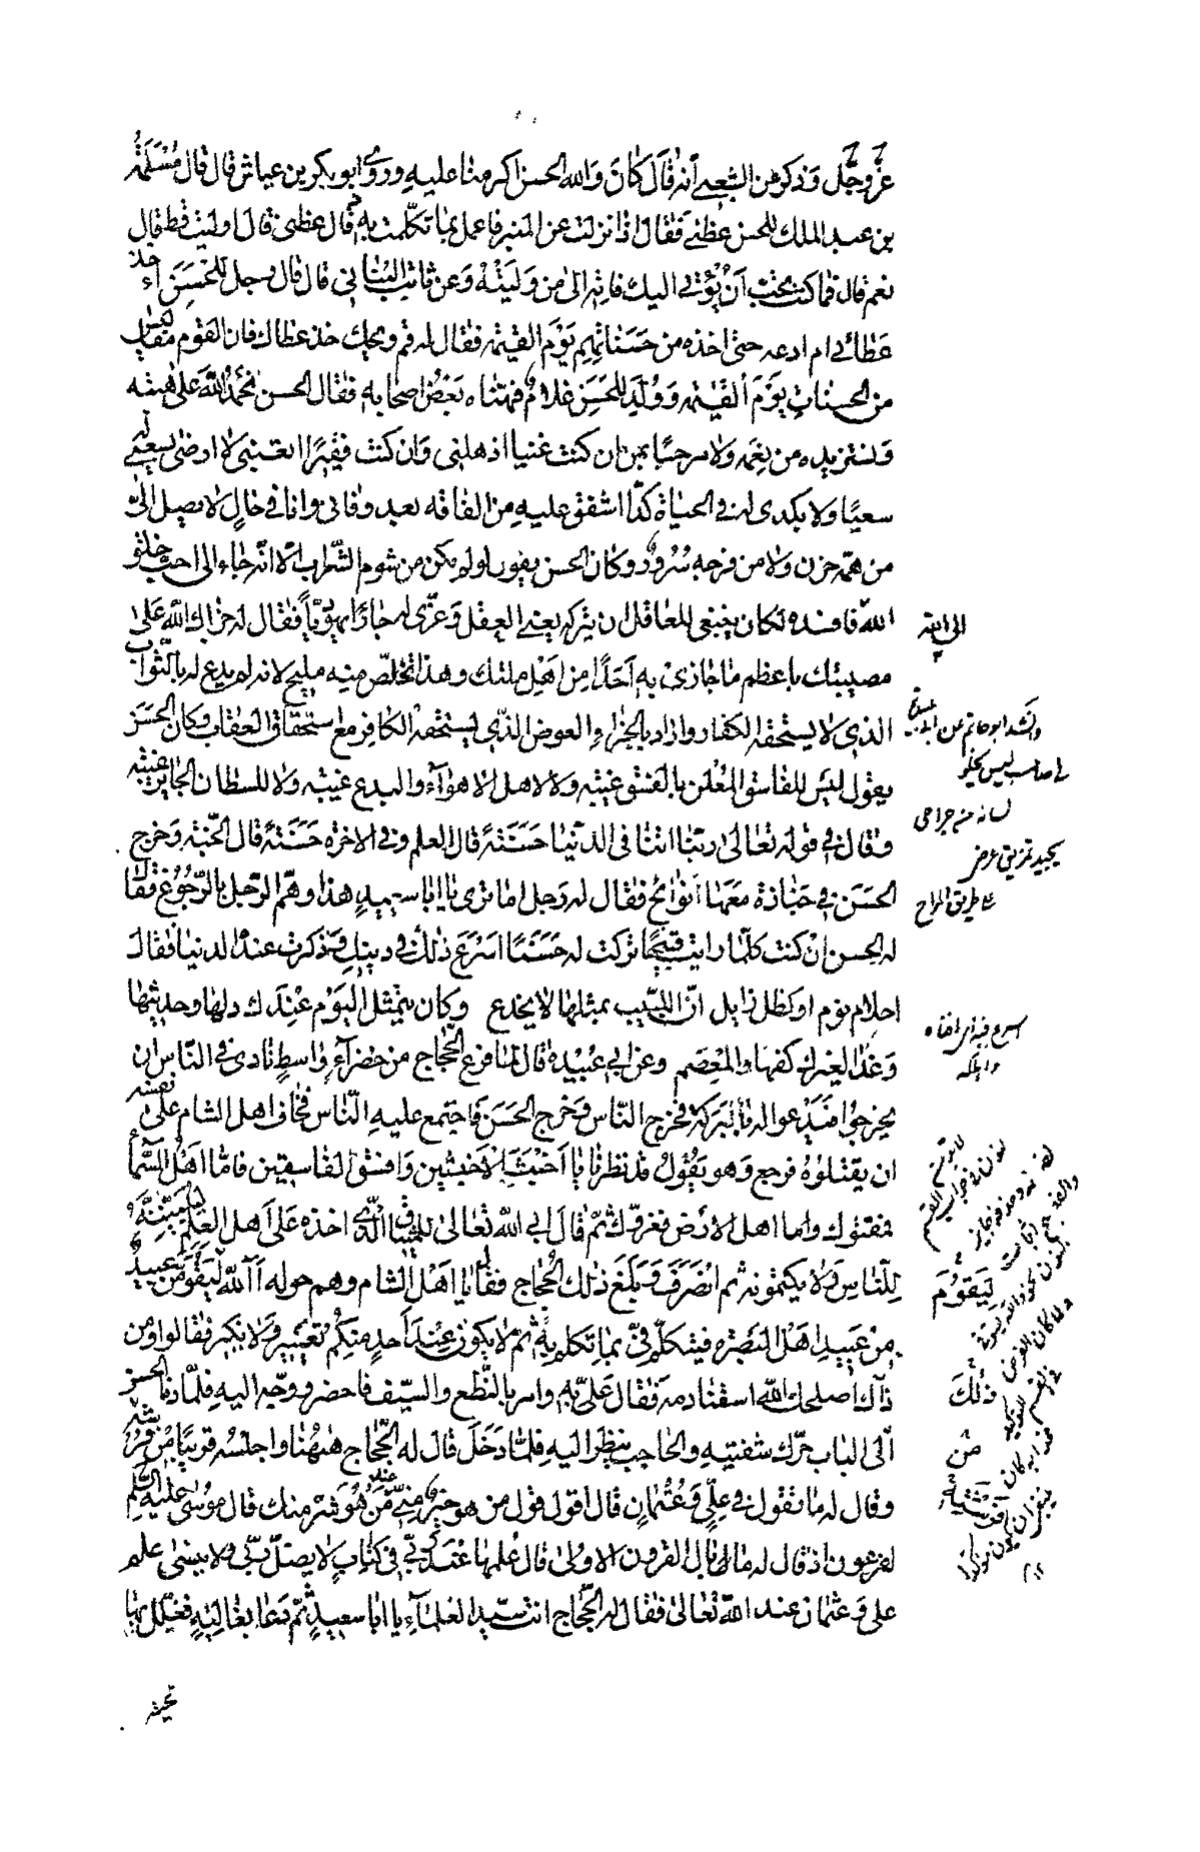 عزّ وجلّ وذكر عن الشعبي أنه قال كان والله الحسن اكرمنا عليه وروى ابو بكر بن عياش قال قال مسلمة
بن عبد الملك للحسن عظني فقال اذا نزلت عن المنبر فاعمل بما تكلمت به قال عظني قال اوليت قط قال
نعم قال فما كنت تحب أن يؤتى اليك فاته الى من وليته وعن ثابت البناني قال قال رجل للحسن آخذ
عطائي ام ادعه حتى اخذه من حسناتهم يوم القيمة فقال له قم ويحك خذ عطاك فان القوم مفاليس
من الحسنات يوم القيمة وولد للحسن غلام فهنّاه بعض اصحابه فقال الحسن نحمد الله على هبته
ونستزيده من نعمه ولا مرحبًا بمن ان كنت غنيا اذهلني وان كنت فقيرًا اتعبني لا ارضى بسعيي له
سعيًا ولا بكدى له في الحياة كدّا اشفق عليه من الفاقه بعد وفاتى وانا في حال لا يصل الىّ
من همه حزن ولا من فرحه سرور وكان الحسن يقول لو لم يكن من شوم الشراب الا انه جاء الى احب خلق
الله فافسده لكان ينبغي للعاقل ان يتركه يعني العقل وعزّى له جارًا يهوديًا فقال له جزاك الله على
مصيبتك باعظم ما جازى به أحدًا من اهل ملتك وهذا تخلّص منه مليح لانه لم يدع له بالثواب
الذي لا يستحقه الكفار واراد بالجزاء العوض الذي يستحقه الكافر مع استحقاق العقاب وكان الحسن
يقول ليس للفاسق المعلن بالفسق غيبة ولا لاهل الاهوآء والبدع غيبة ولا للسلطان الجاير غيبة
وقال في قوله تعالى ربنا اتنا في الدنيا حسنة قال العلم وفي الاخرة حسنة قال الجنة وخرج
الحسن في جنازة معها نوائح فقال له رجل اما ترى يا ابا سعيد هذا وهمّ الرجل بالرجوع فقال
له الحسن ان كنت كلما رايت قبيحًا تركت له حسنًا اسرع ذلك في دينك وذكرت عنده الدنيا فقال
احلام نوم او كظل زايل انّ اللبيب بمثلها لا يخدع وكان يتمثل اليوم عندك دلها وحديثها
وغدا لغيرك كفها والمعصم وعن ابي عبيدة قال لما فرغ الحجاج من خضرآء واسط نادى في الناس ان
يخرجوا فيدعوا له بالبركة فخرج الناس وخرج الحسن فاجتمع عليه الناس فخاف اهل الشام على نفسه
ان يقتلوه فرجع وهو يقول قد نظرنا يا أخبث الاخبثين وافسق الفاسقين فامّا اهل السماء
فمقتوك واما اهل الارض فغرّوك ثم قال ابى الله تعالى للميثاق الذي اخذه على اهل العلم ليبيننه
للناس ولا يكتمونه ثم انصرف وبلغ ذلك الحجاج فقال يا اهل الشام وهم حوله آلله ليقومن عبيد
من عبيد اهل البصره فيتكلم فيّ بما تكلم به ثم لا يكون عند أحد منكم تغيير ولا نكير فقالوا ومن
ذاك اصلحك الله اسقنا دمه فقال عليّ به وامر بالنطع والسيف فاحضر ووجّه اليه فلما دنا الحسن
الى الباب حرّك شفتيه والحاجب ينظر اليه فلما دخل قال له الحجاج ههنا واجلسه قريبًا من فرشه
وقال له ما تقول في عليّ وعثمان قال اقول قول من هو خير منّي عند من هو شرّ منك قال موسى عليه السلام
لفرعون اذ قال له ما بال القرون الاولى قال علمها عند ربي في كتاب لا يضل ربّي ولا ينسى علم
علي وعثمان عند الله تعالى فقال له الحجاج انت سيد العلمآء يا ابا سعيد ثم دعا بغالية فغلّل بها
الى الله
وانشد ابو حاتم عن
في صاحب ليس يخلو
لسانه من جراحي
يجيد تمزيق عرضي
على طريق المزاح
ليقوم
ذلك
من